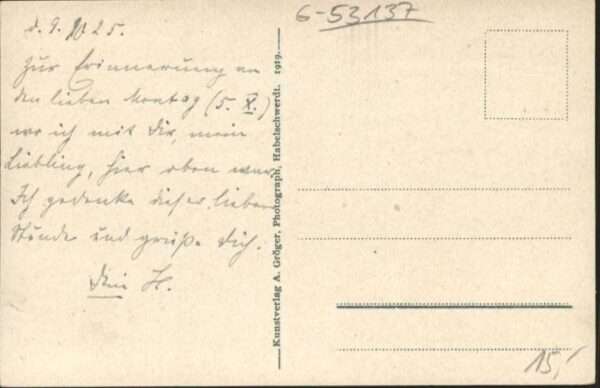 d. 9. X 25.
Zur Erinnerung an
den lieben Montag (5. X.)
wo ich mit Dir, mein
Liebling, hier oben war.
Ich gedenke dieser lieben
Stunde und grüße Dich.
Dein H.
Kunstverlag A. Gröger, Photograph, Habelschwerdt. 1919.
6-53137
15,-